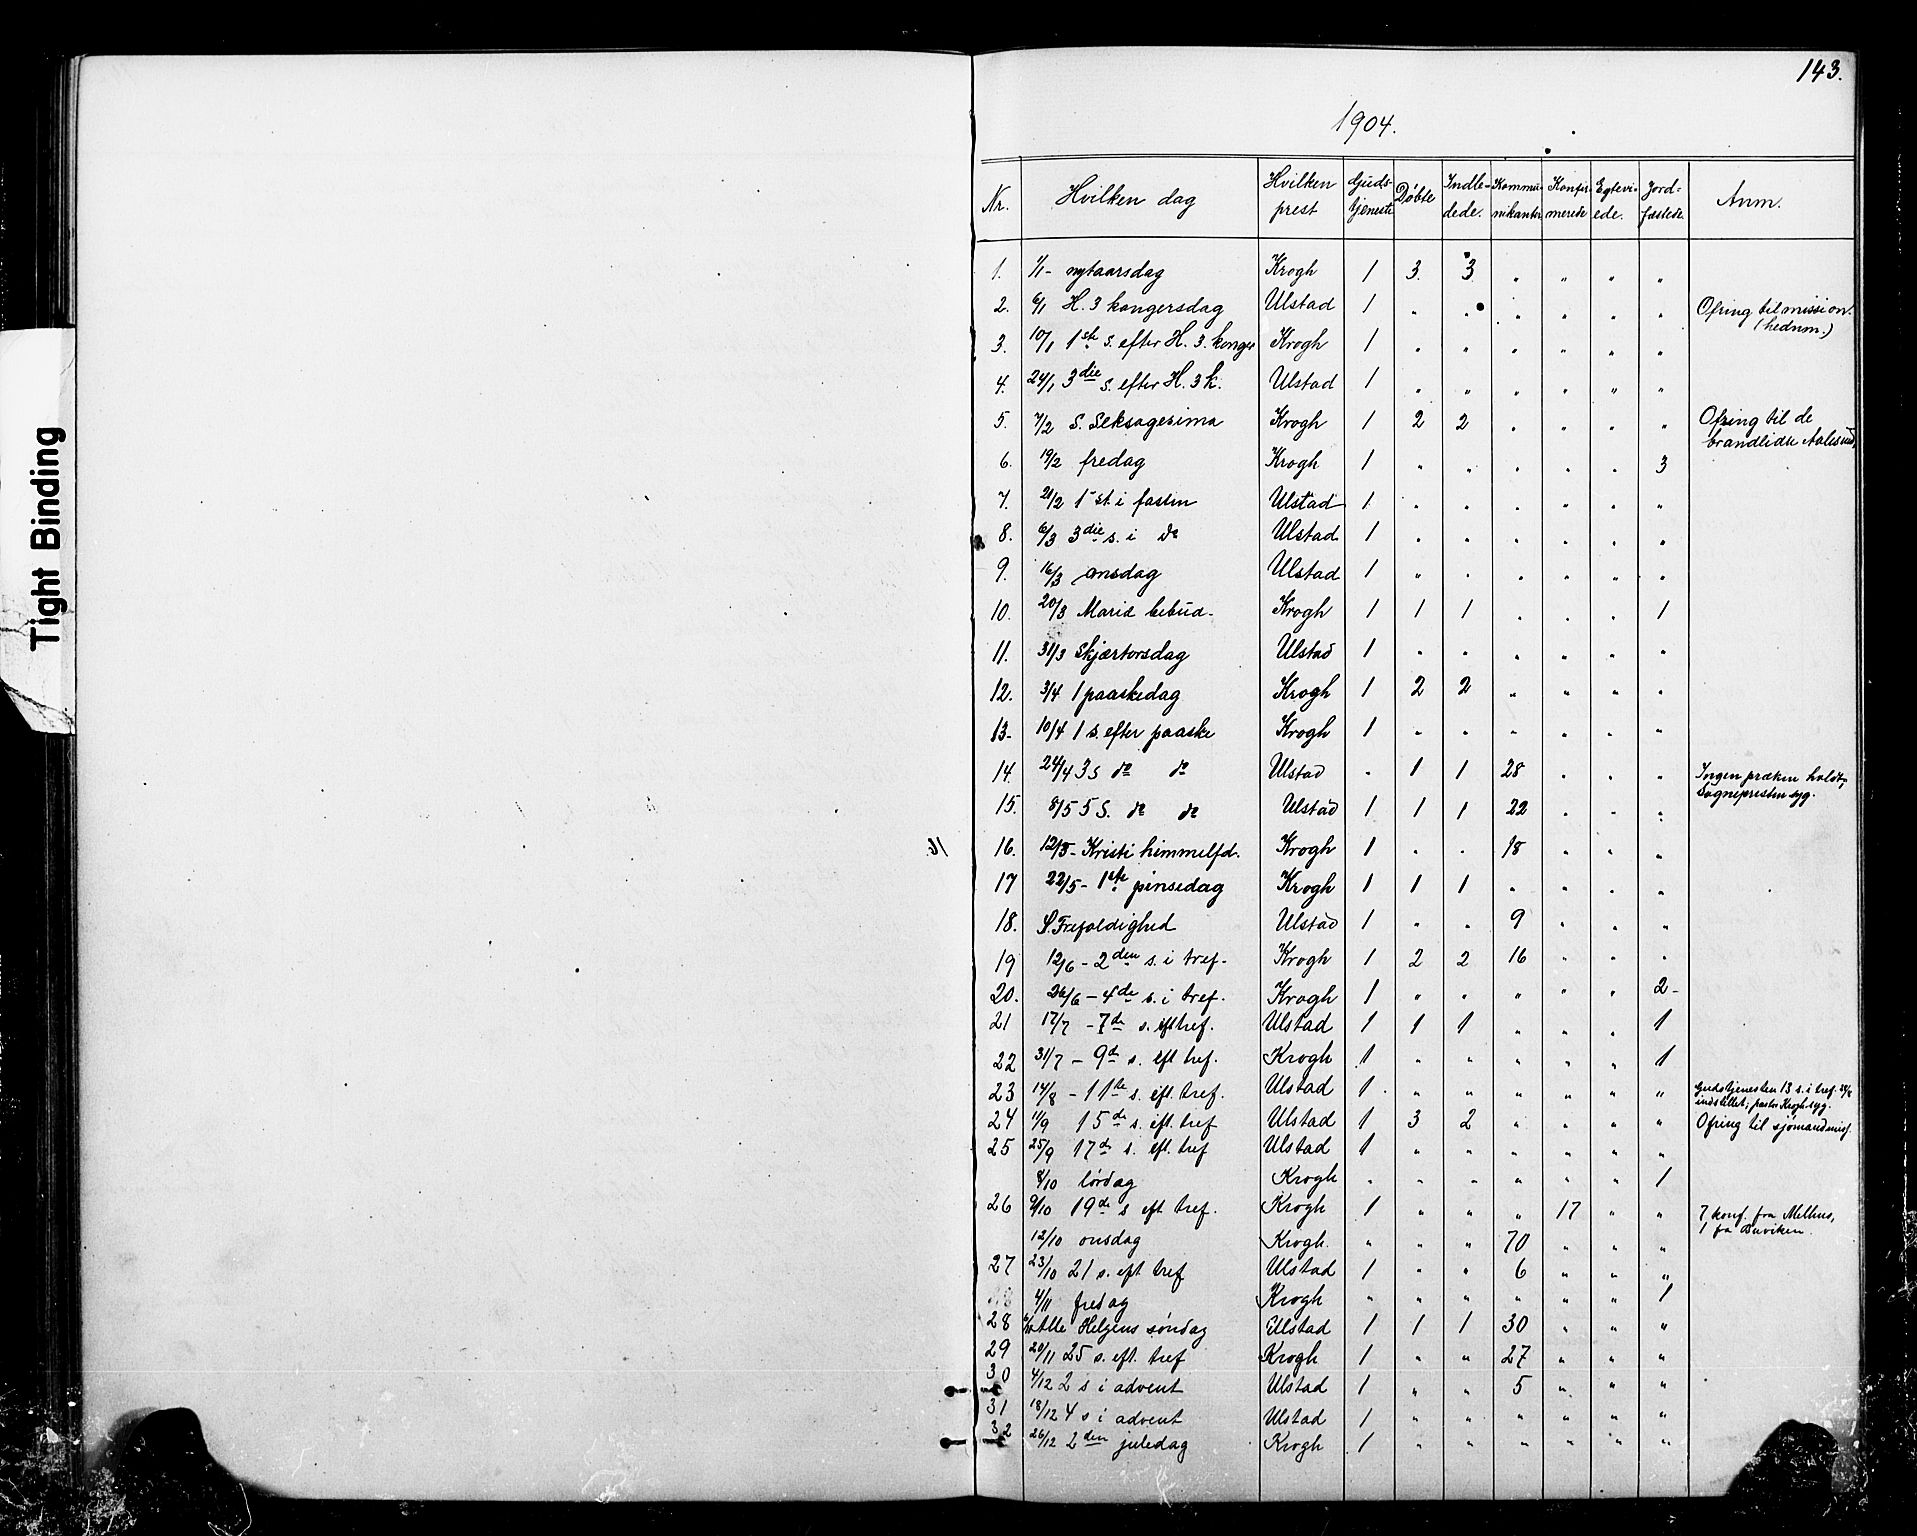 Tight Binding
143.
1904.
Nr. Hvilken dag Hvilken prest Guds-tjeneste Døbte Indle-dede. Kommu-nikanter Konfir-merede Egtevi-ede. Jord-fæstede. Anm.
1. 1/1- nytaarsdag Krogh 1 3. 3 " " " "
2. 6/1 H. 3 kongersdag Ulstad 1 " " " " " " Ofring til mission. (hednm.)
3. 10/1 1ste s. efter H. 3. konger Krogh 1 " " " " " "
4. 24/1 3die s. efter H. 3 k. Ulstad 1 " " " " " "
5. 7/2 S. Seksagesima Krogh 1 2 2 " " " " Ofring til de brandlidte Aalesund,
6. 19/2 fredag Krogh 1 " " " " " 3
7. 21/2 1 st. i fasten Ulstad 1 " " " " " "
8. 6/3 3die s. i do Ulstad 1 " " " " " "
9. 16/3 onsdag Ulstad 1 " " " " " "
10. 20/3 Mariæ bebud- Krogh 1 1 1 " " " 1
11. 31/3 Skjærtorsdag Ulstad 1 " " " " " "
12. 3/4 1 paaskedag Krogh 1 2 2 " " " "
13- 10/4 1 s. efter paaske Krogh 1 " " " " " "
14. 24/4 3 s do do Ulstad " 1 1 28 " " " Ingen præken holdt, Sognepresten syg.
15. 8/5 5 S. do do Ulstad 1 1 1 22 " " "
16. 12/5- Kristi himmelfd. Krogh 1 " " 18 " " "
17 22/5- 1ste pinsedag Krogh 1 1 1 " " " "
18. S. Trefoldighed Ulstad 1 " " 9 " " "
19 12/6 - 2den s. i tref- Krogh 1 2 2 16 " " "
20. 26/6 - 4de s. i tref. Krogh 1 " " " " " 2-
21 17/7 - 7de s. eft tref. Ulstad 1 1 1 " " " 1
22 31/7 - 9d s. eft tref. Krogh 1 " " " " " 1
23 14/8 - 11te s. eft. tref. Ulstad 1 " " " " " " Gudstjenesten 13 s. i tref. 28/8 indstillet; pastor Krogh syg.
24 11/9 15de s. eft. tref Ulstad 1 3 2 " " " " Ofring til sjømandsmiss.
25 25/9 17de s. eft. tref Ulstad 1 " " " " " "
8/10 lørdag Krogh " " " " " " 1
26 9/10 19de s eft tref. Krogh 1 " " " 17 " " 7 konf. fra Melhus, 1 fa Buviken.
12/10 onsdag Krogh. " " " 70 " " "
27 23/10 21 s. eft tref Ulstad 1 " " 6 " " "
4/11 fredag Krogh " " " " " " 1
28 Alle Helgens søndag Ulstad 1 1 1 30 " " "
29 20/11 25 s. eft. tref Krogh 1 " " 27 " " "
30 4/12 2 s i advent Ulstad 1 " " 5 " " "
31 18/12 4 s i advent Ulstad 1 " " " " " "
32 26/12 2den juledag Krogh 1 " " " " " "